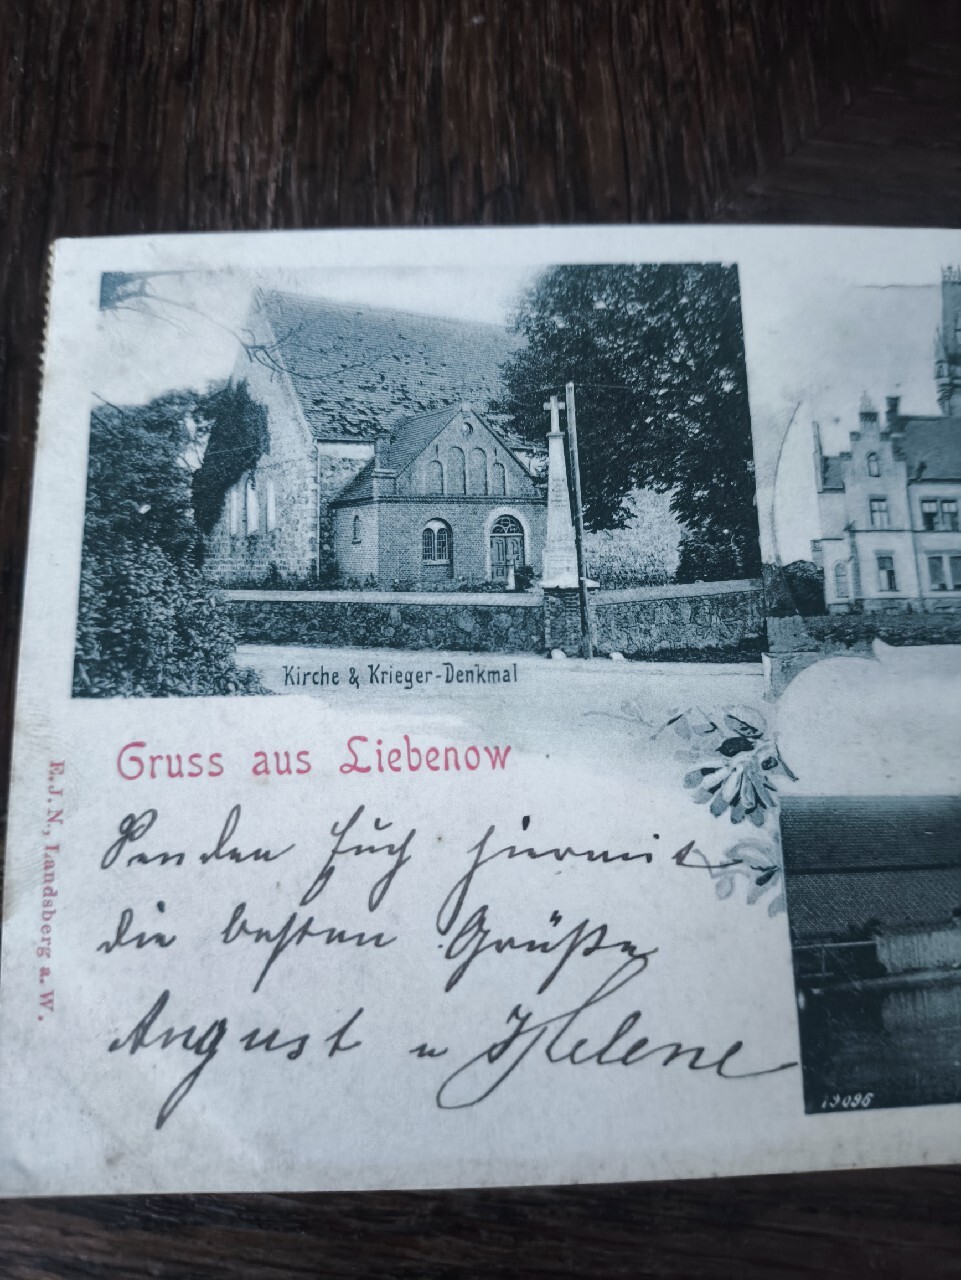 Kirche & Krieger-Denkmal
Gruss aus Liebenow
Senden Euch hiermit
die besten Grüße
August u Helene
E.J.N., Landsberg a. W.
19096